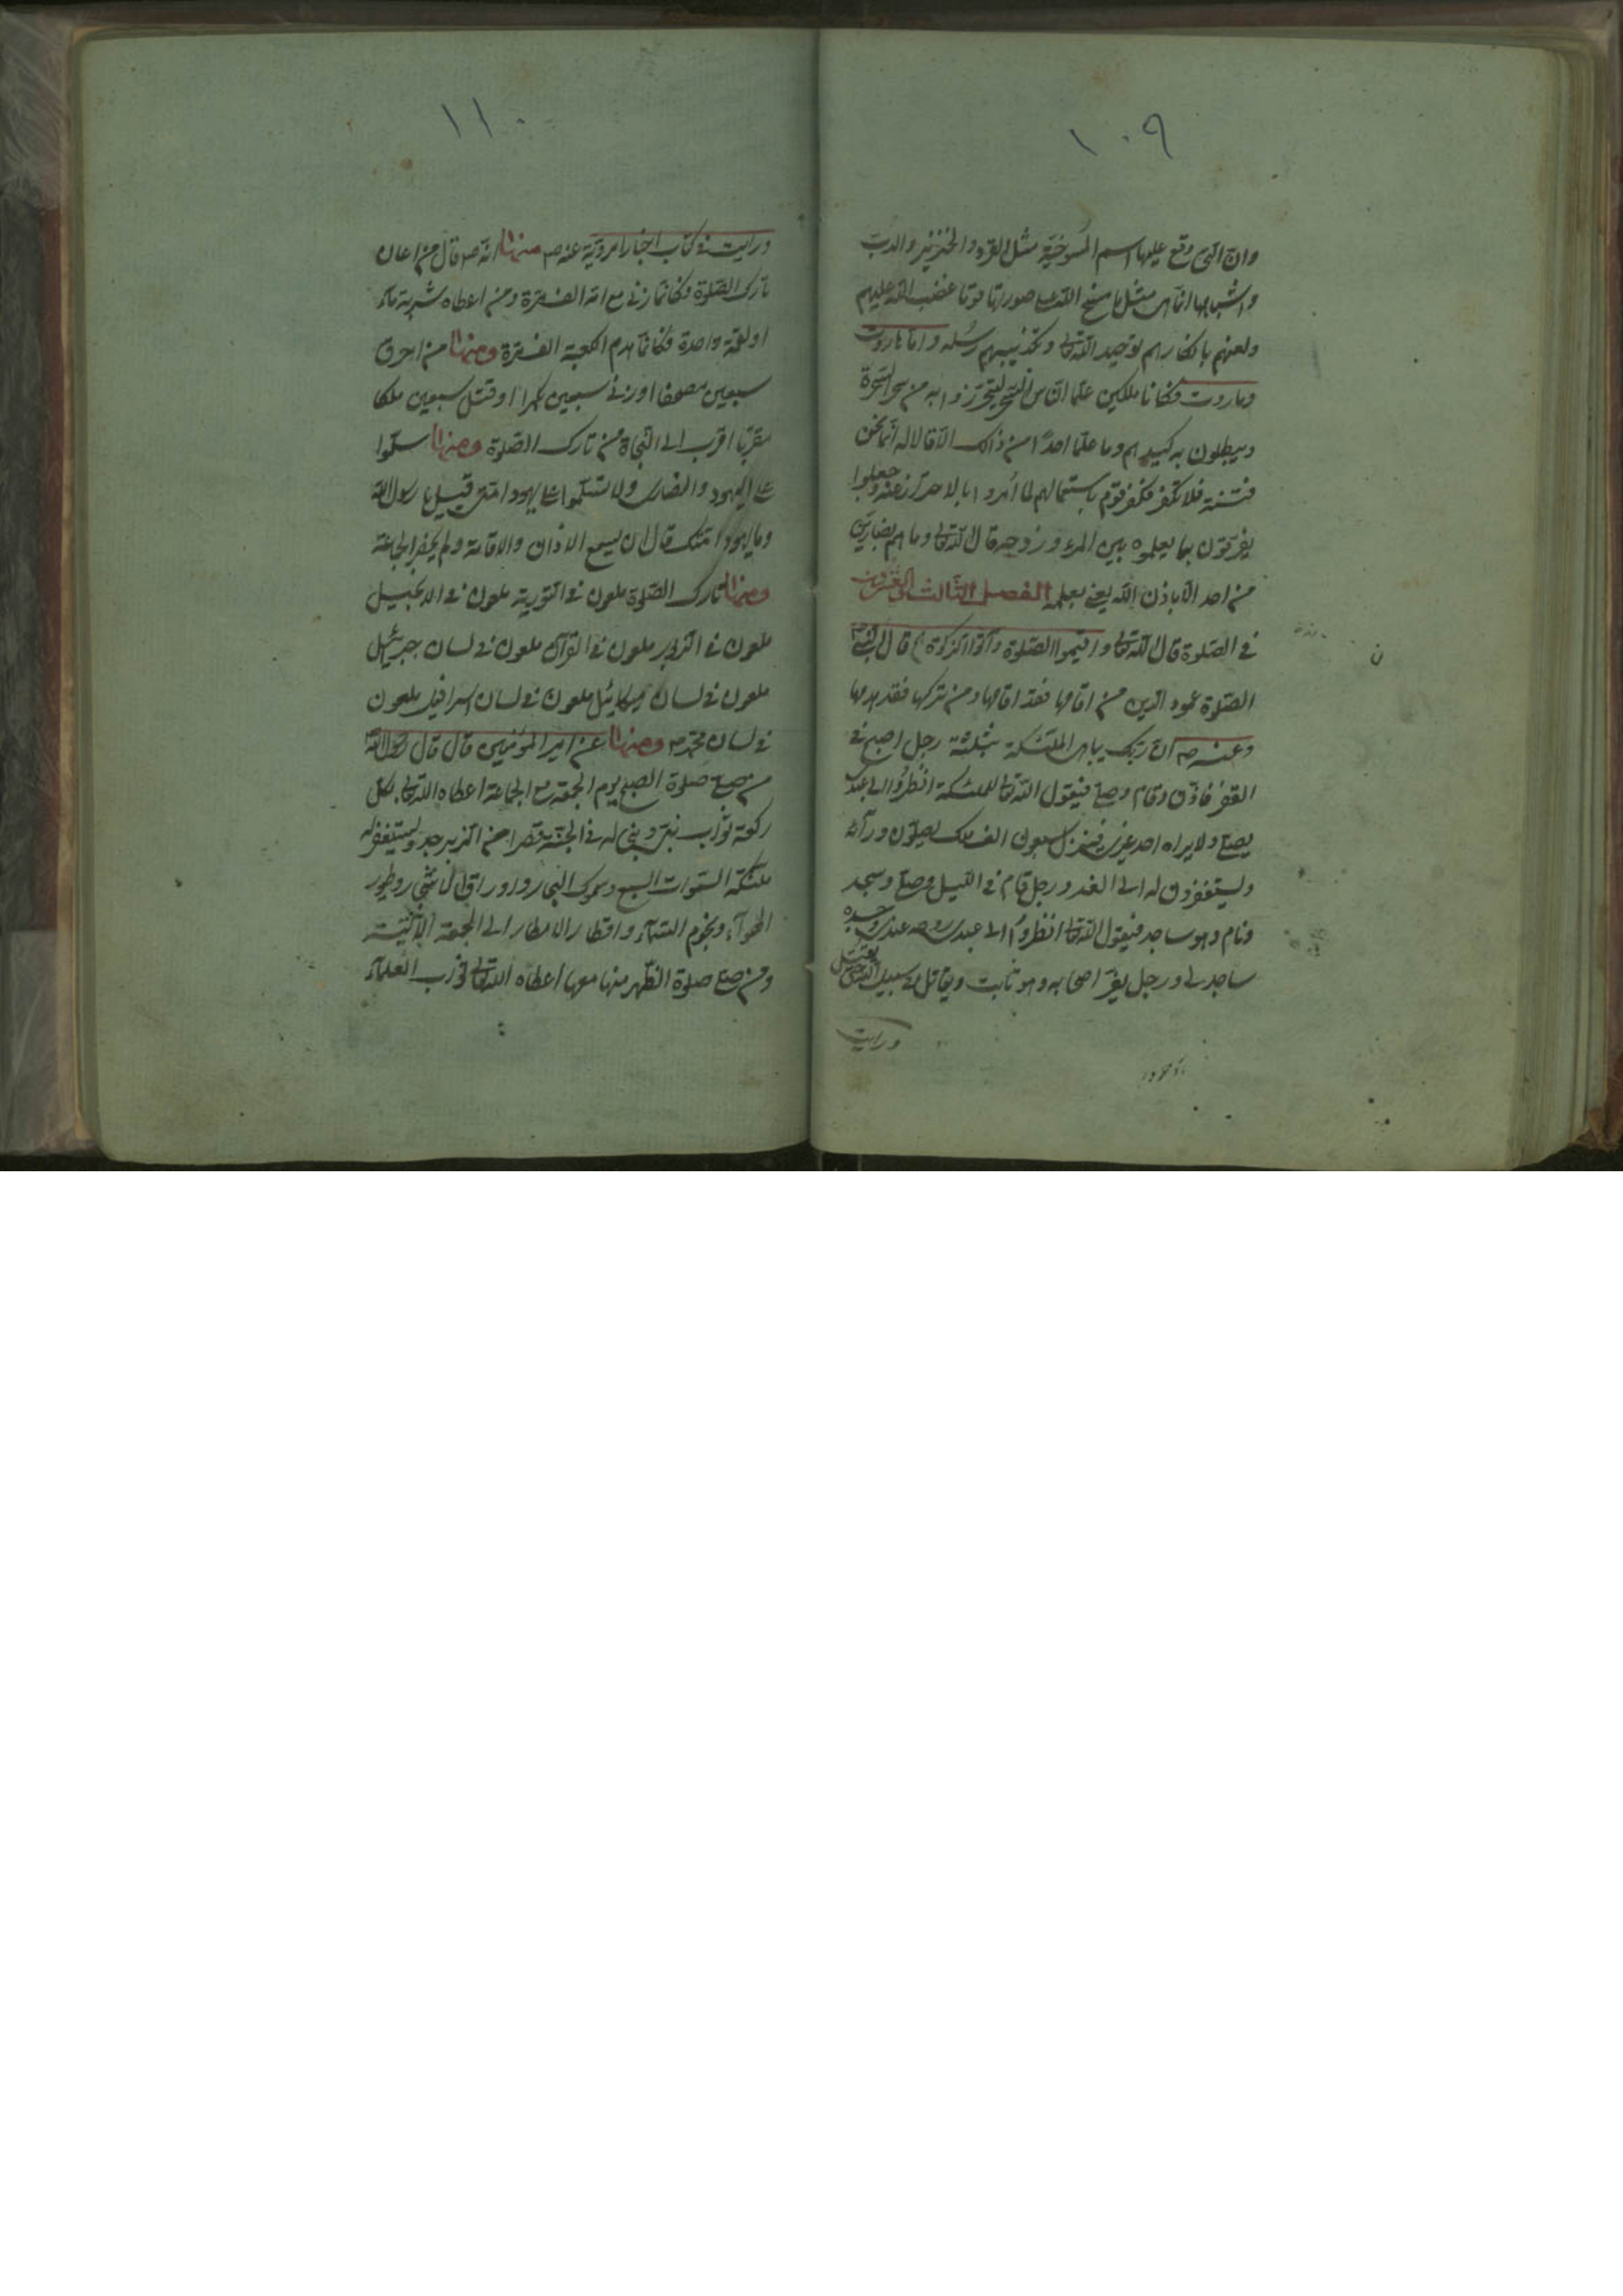 ١٠٩
وانّ التى وقع عليها اسم المسوخيّة مثل القردة والخنزير والدبّ
واشباهها انّما هى مثل ما مسخ الله على صورتها قوما غضب الله عليهم
ولعنهم بانكارهم توحيد الله تعالى وتكذيبهم رسله وامّا هاروت
وماروت فكانا ملكين علّما النّاس السّحر ليتحرّزوا به من سحر السّحرة
ويبطلون به كيدهم وما علّما احدًا من ذلك الّا قالا له انّما نحن
فتنة فلا تكفر فكفر قوم باستعمالهم لما امروا بالاحتراز عنه وجعلوا
يفرّقون بما يعلموه بين المرء وزوجه قال الله تعالى وما هم بضارّين به
من احد الّا باذن الله يعنى بعلمه الفصل الثّالث والعشرون
فى الصّلوة قال الله تعالى واقيموا الصّلوة وآتوا الزّكوة قال النّبىّ ص
الصّلوة عمود الدّين من اقامها فقد اقامها ومن تركها فقد هدمها
وعنه ص انّ ربّك يباهى الملئكة بثلثة رجل اصبح فى
القفر فاذّن وقام وصلّى فيقول الله تعالى للملئكة انظروا الى عبدى
يصلّى ولا يراه احد غيرى فينزل سبعون الف ملك يصلّون ورآئه
ويستغفرون له الى الغد ورجل قام فى اللّيل وصلّى وسجد
ونام وهو ساجد فيقول الله تعالى انظروا الى عبدى روحه عندى وجسده
ساجد لى ورجل يفرّ اصحابه وهو ثابت ويقاتل فى سبيل الله حتى يقتل
ورايت
ن
١١٠
ورايت فى كتاب اخبارا مرويّة عنه ص منها انّه ص قال من اعان
تارك الصّلوة فكانّما زنى مع امّه الف مرّة ومن اعطاه شربة مآء
او لقمة واحدة فكانّما هدم الكعبة الف مرّة ومنها من احرق
سبعين مصحفا او زنى سبعين بكرا او قتل سبعين ملكا
مقرّبا اقرب الى النّجاة من تارك الصّلوة ومنها سلّموا
على اليهود والنصارى ولا تسلّموا على يهود امّتى قيل يا رسول الله
وما يهود امّتك قال ان يسمع الاذان والاقامة ولم يحضر الجماعة
ومنها تارك الصّلوة ملعون فى التّورية ملعون فى الانجيل
ملعون فى الزّبور ملعون فى القرآن ملعون فى لسان جبرئيل
ملعون فى لسان ميكائيل ملعون فى لسان اسرافيل ملعون
فى لسان محمّد ص ومنها عن امير المؤمنين قال قال رسول الله ص
من صلّى صلوة الصبح يوم الجمعة مع الجماعة اعطاه الله تعالى بكل
ركعة ثواب نبىّ وبنى له فى الجنّة قصرا من الزّبرجد ويستغفر له
ملئكة السّموات السّبع وسموك البحار واوراق الاشجار وطيور
الهوآء ونجوم السّمآء واقطار الامطار الى الجمعة الآتية
ومن صلّى صلوة الظّهر منها معها اعطاه الله تعالى ثواب العلمآء